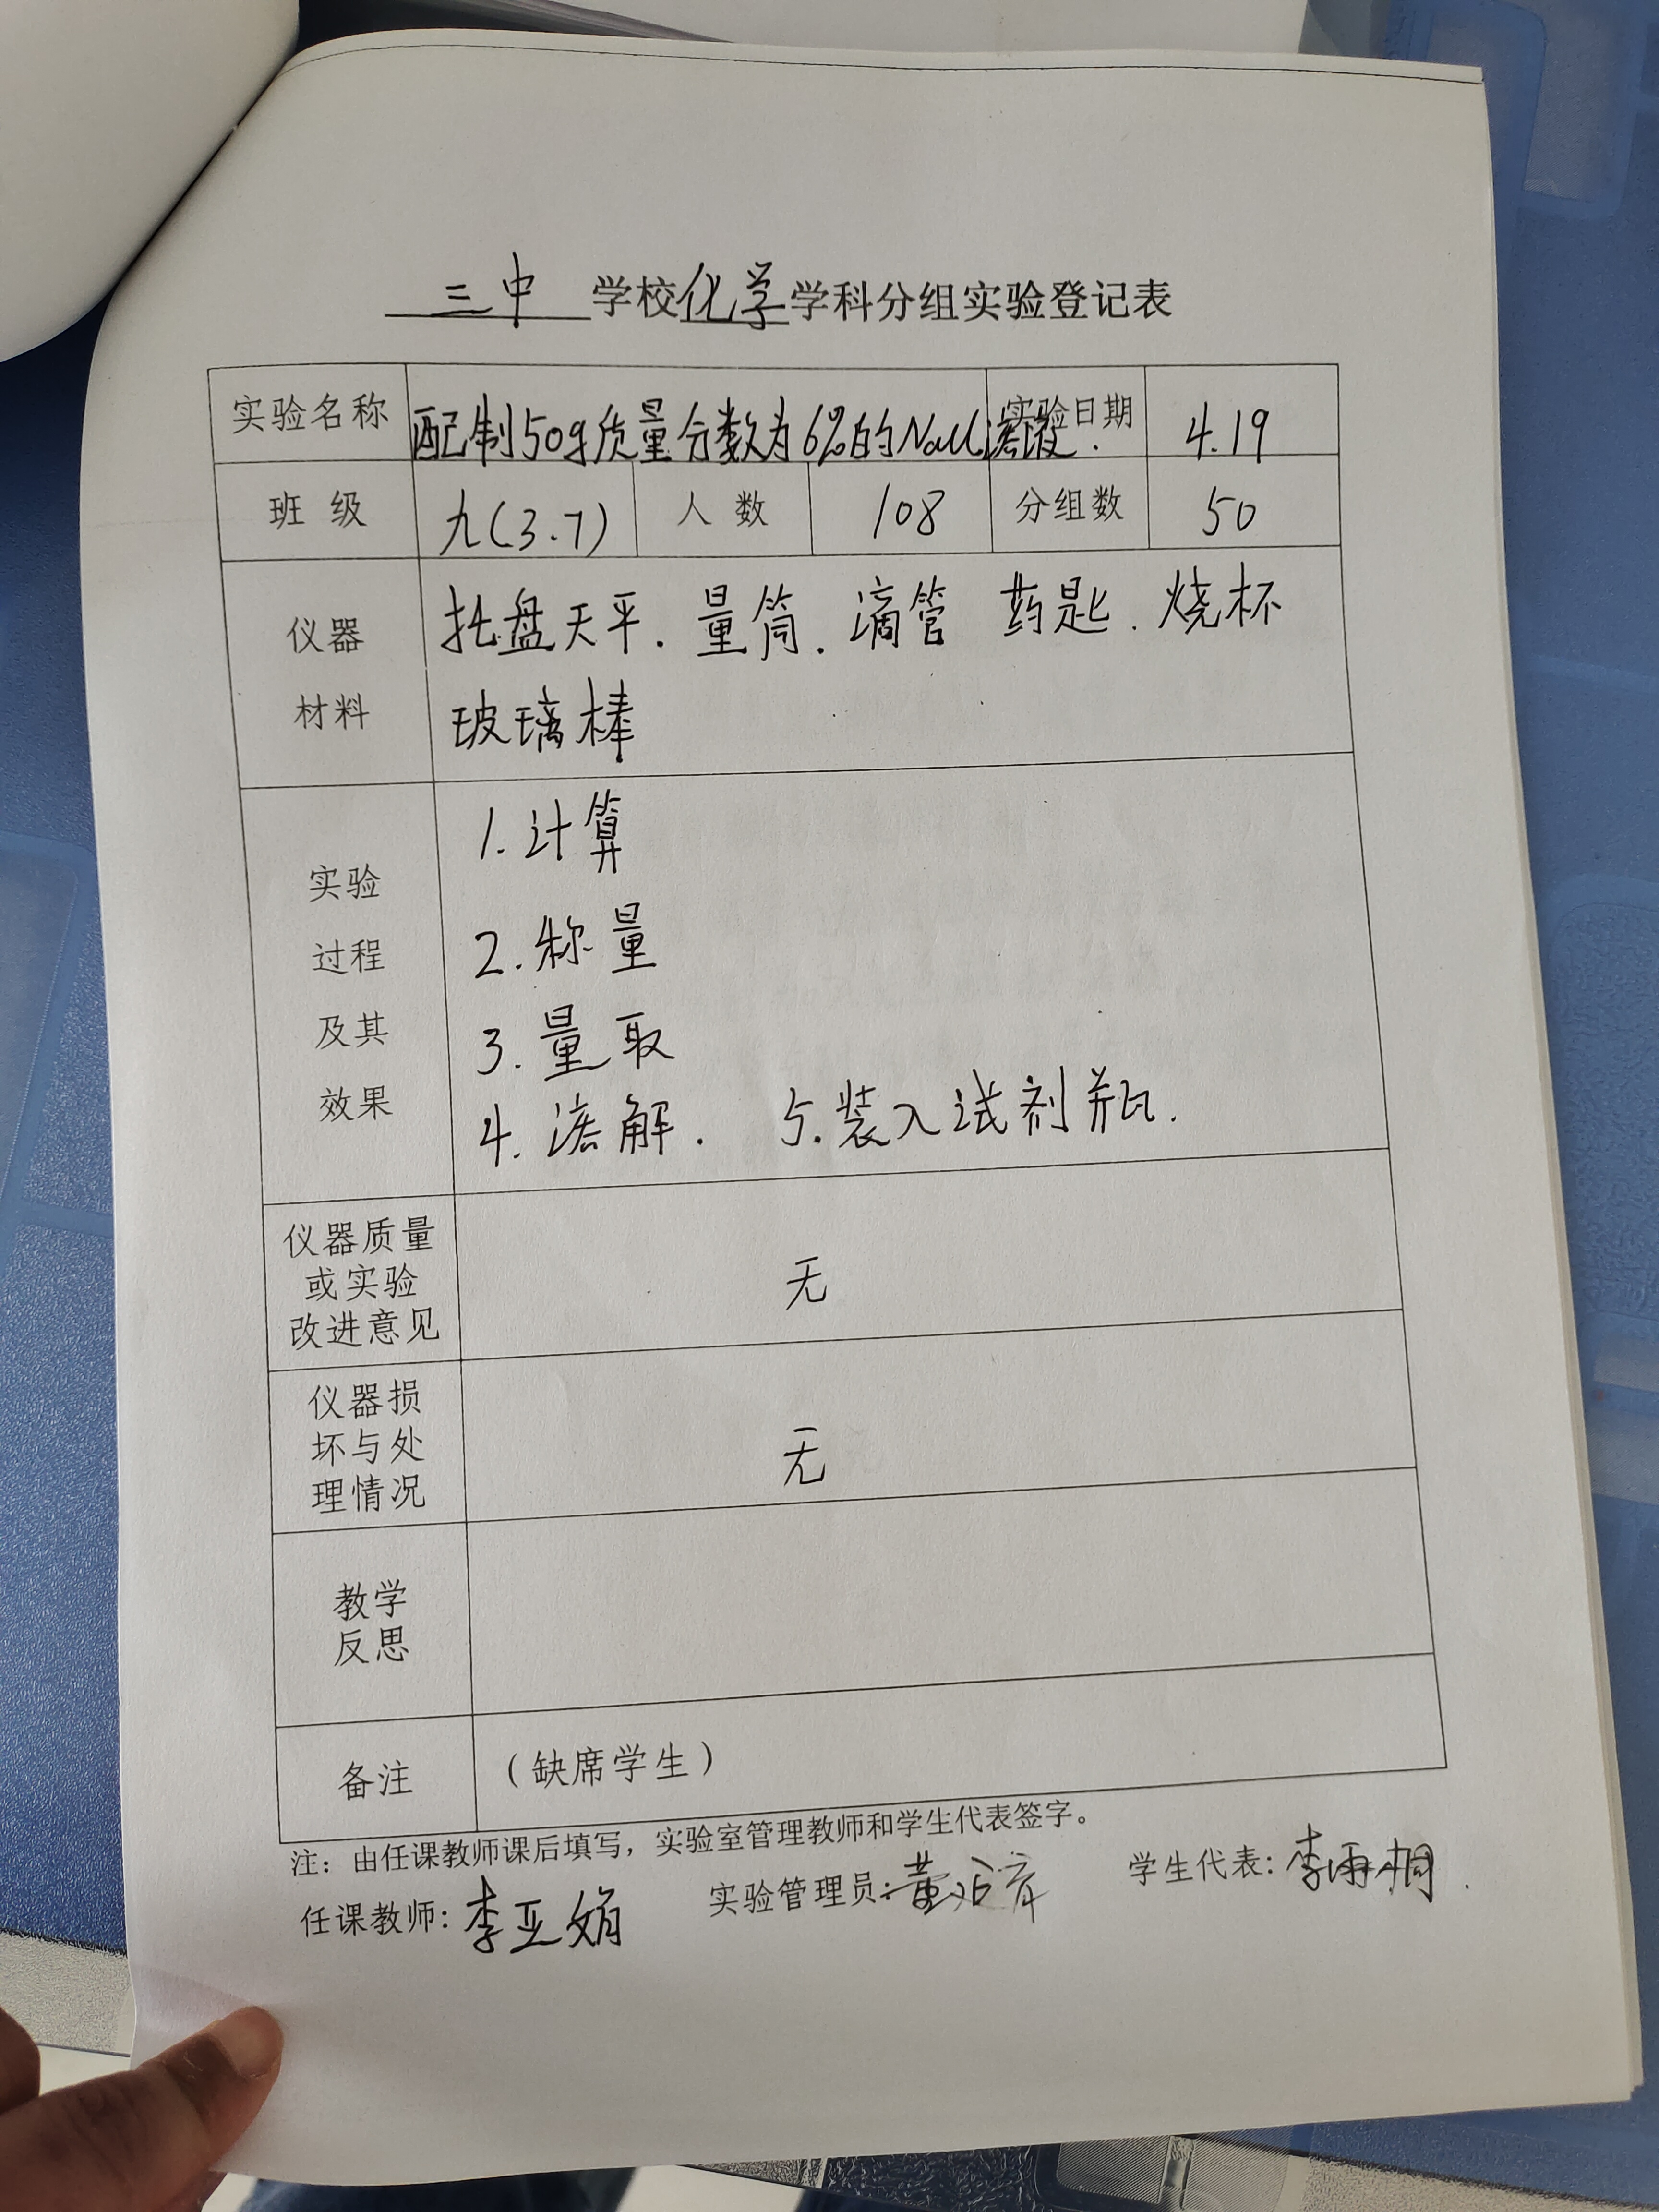 三中 学校 化学 学科分组实验登记表
实验名称 配制50g质量分数为6%的NaCl溶液. 实验日期 4.19
班 级 九(3.7) 人 数 108 分组数 50
仪器
材料
托盘天平. 量筒. 滴管 药匙. 烧杯
玻璃棒
实验
过程
及其
效果
1. 计算
2. 称量
3. 量取
4. 溶解. 5. 装入试剂瓶.
仪器质量
或实验
改进意见
无
仪器损
坏与处
理情况
无
教学
反思
备注 (缺席学生)
注：由任课教师课后填写，实验室管理教师和学生代表签字。
任课教师：李亚娟 实验管理员： 学生代表：李雨桐.